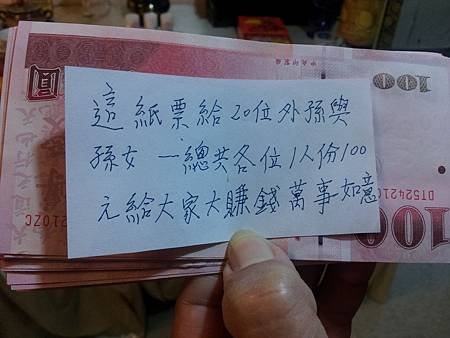 這紙票給20位外孫與
孫女一總共各位1人份100
元給大家大賺錢萬事如意
圓
中央印製廠
100
DT524210ZC
100